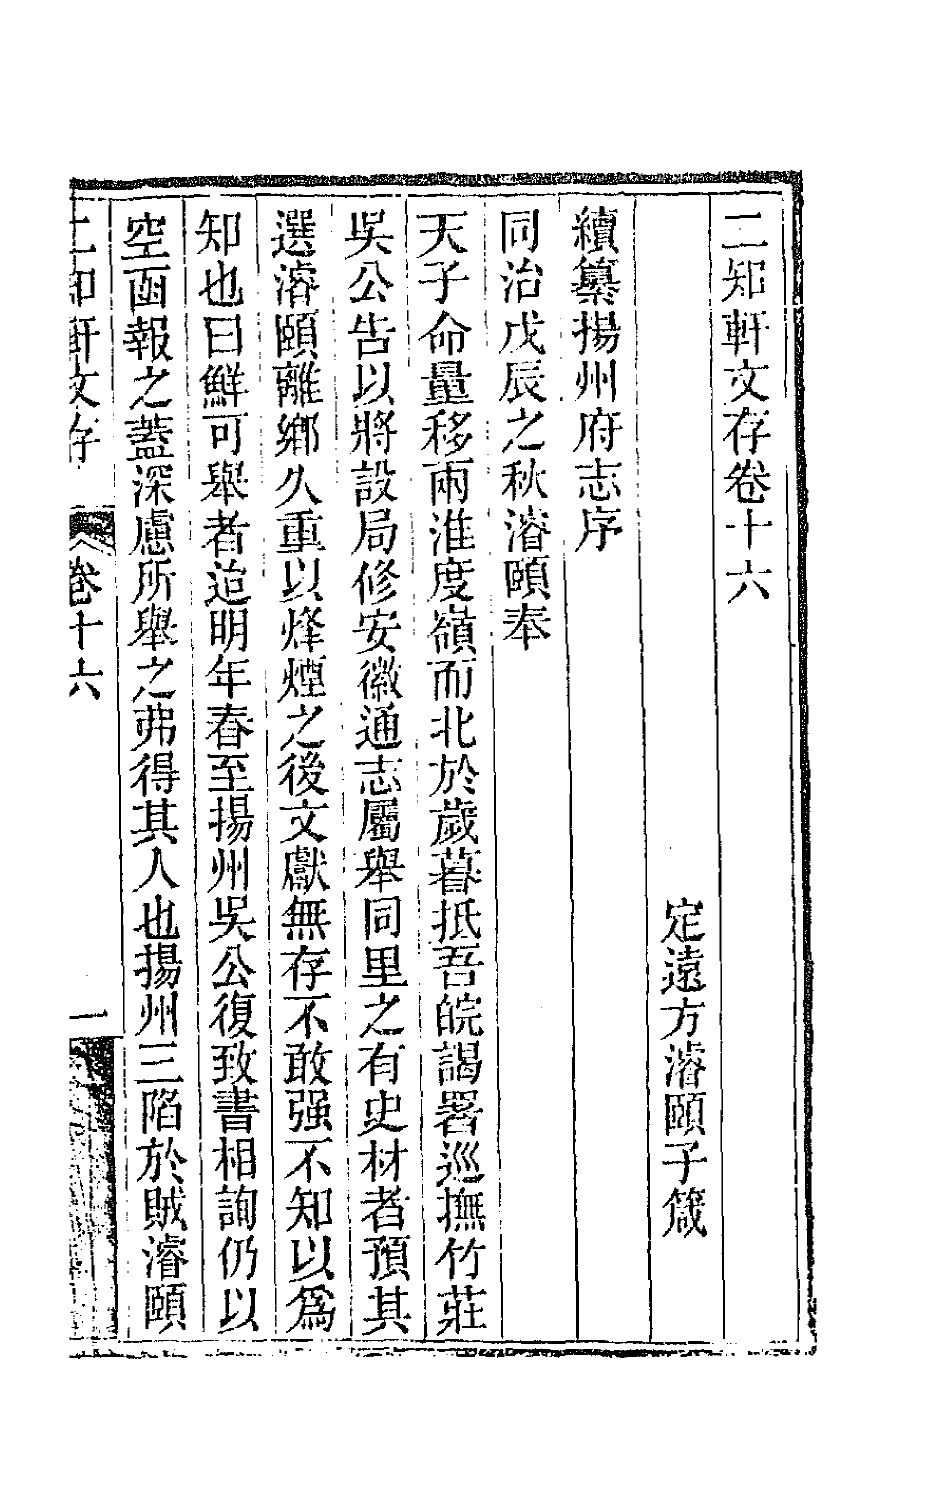 二知軒文存卷十六
定遠方濬頤子箴
續纂揚州府志序
同治戊辰之秋濬頤奉
天子命量移兩淮度嶺而北於歲暮抵吾皖謁署巡撫竹莊
吳公告以將設局修安徽通志屬舉同里之有史材者預其
選濬頤離鄉久重以烽煙之後文獻無存不敢强不知以爲
知也曰鮮可舉者迨明年春至揚州吳公復致書相詢仍以
空函報之蓋深慮所舉之弗得其人也揚州三陷於賊濬頤
二知軒文存 卷十六 一